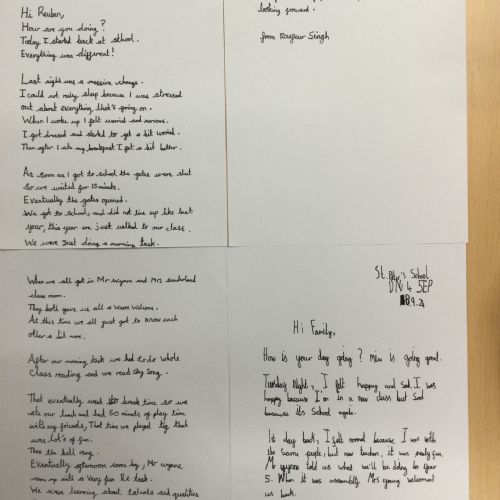 Hi Reuben,
How are you doing?
Today I started back at school.
Everything was different!
Last night was a massive change.
I could not really sleep because I was stressed
out about everything, that's going on.
When I woke up I felt worried and nervous.
I got dressed and started to get a bit worried.
Then after I ate my breakfast I felt a bit better.
As soon as I got to school the gates were shut
so we waited for 15 minute.
Eventually the gates opened.
We got to school, and did not line up like last
year, this year we just walked to our class.
We were just doing a morning task.
looking forward.
from Ranveer Singh
When we all got in Mr Wynne and Mrs Sunderland
class room.
They both gave us all a warm welcome.
At this time we all just got to know each
other a bit more.
After our morning task we had to do whole
class reading and we read Sky Song.
That eventually went break time so we
ate our lunch and had 60 minutes of play time
with my friends, That time we played tig that
was lot's of fun.
Then the bell rang.
Eventually afternoon came by, Mr Wynne
came up with a very fun R.e task.
We were learning about talents and qualities
St. School
4 SEP
Hi Family,
How is your day going? mine is going good.
Tuesday Night, I felt happy and sad. I was
happy because I'm in a new class but sad
because its School again.
1st day back, I felt normal because I was with
the same people, but new teacher, it was really fun.
Mr Wynne told us what we'll be doing in year
5. When it was assembly Mrs young welcomed
us back.